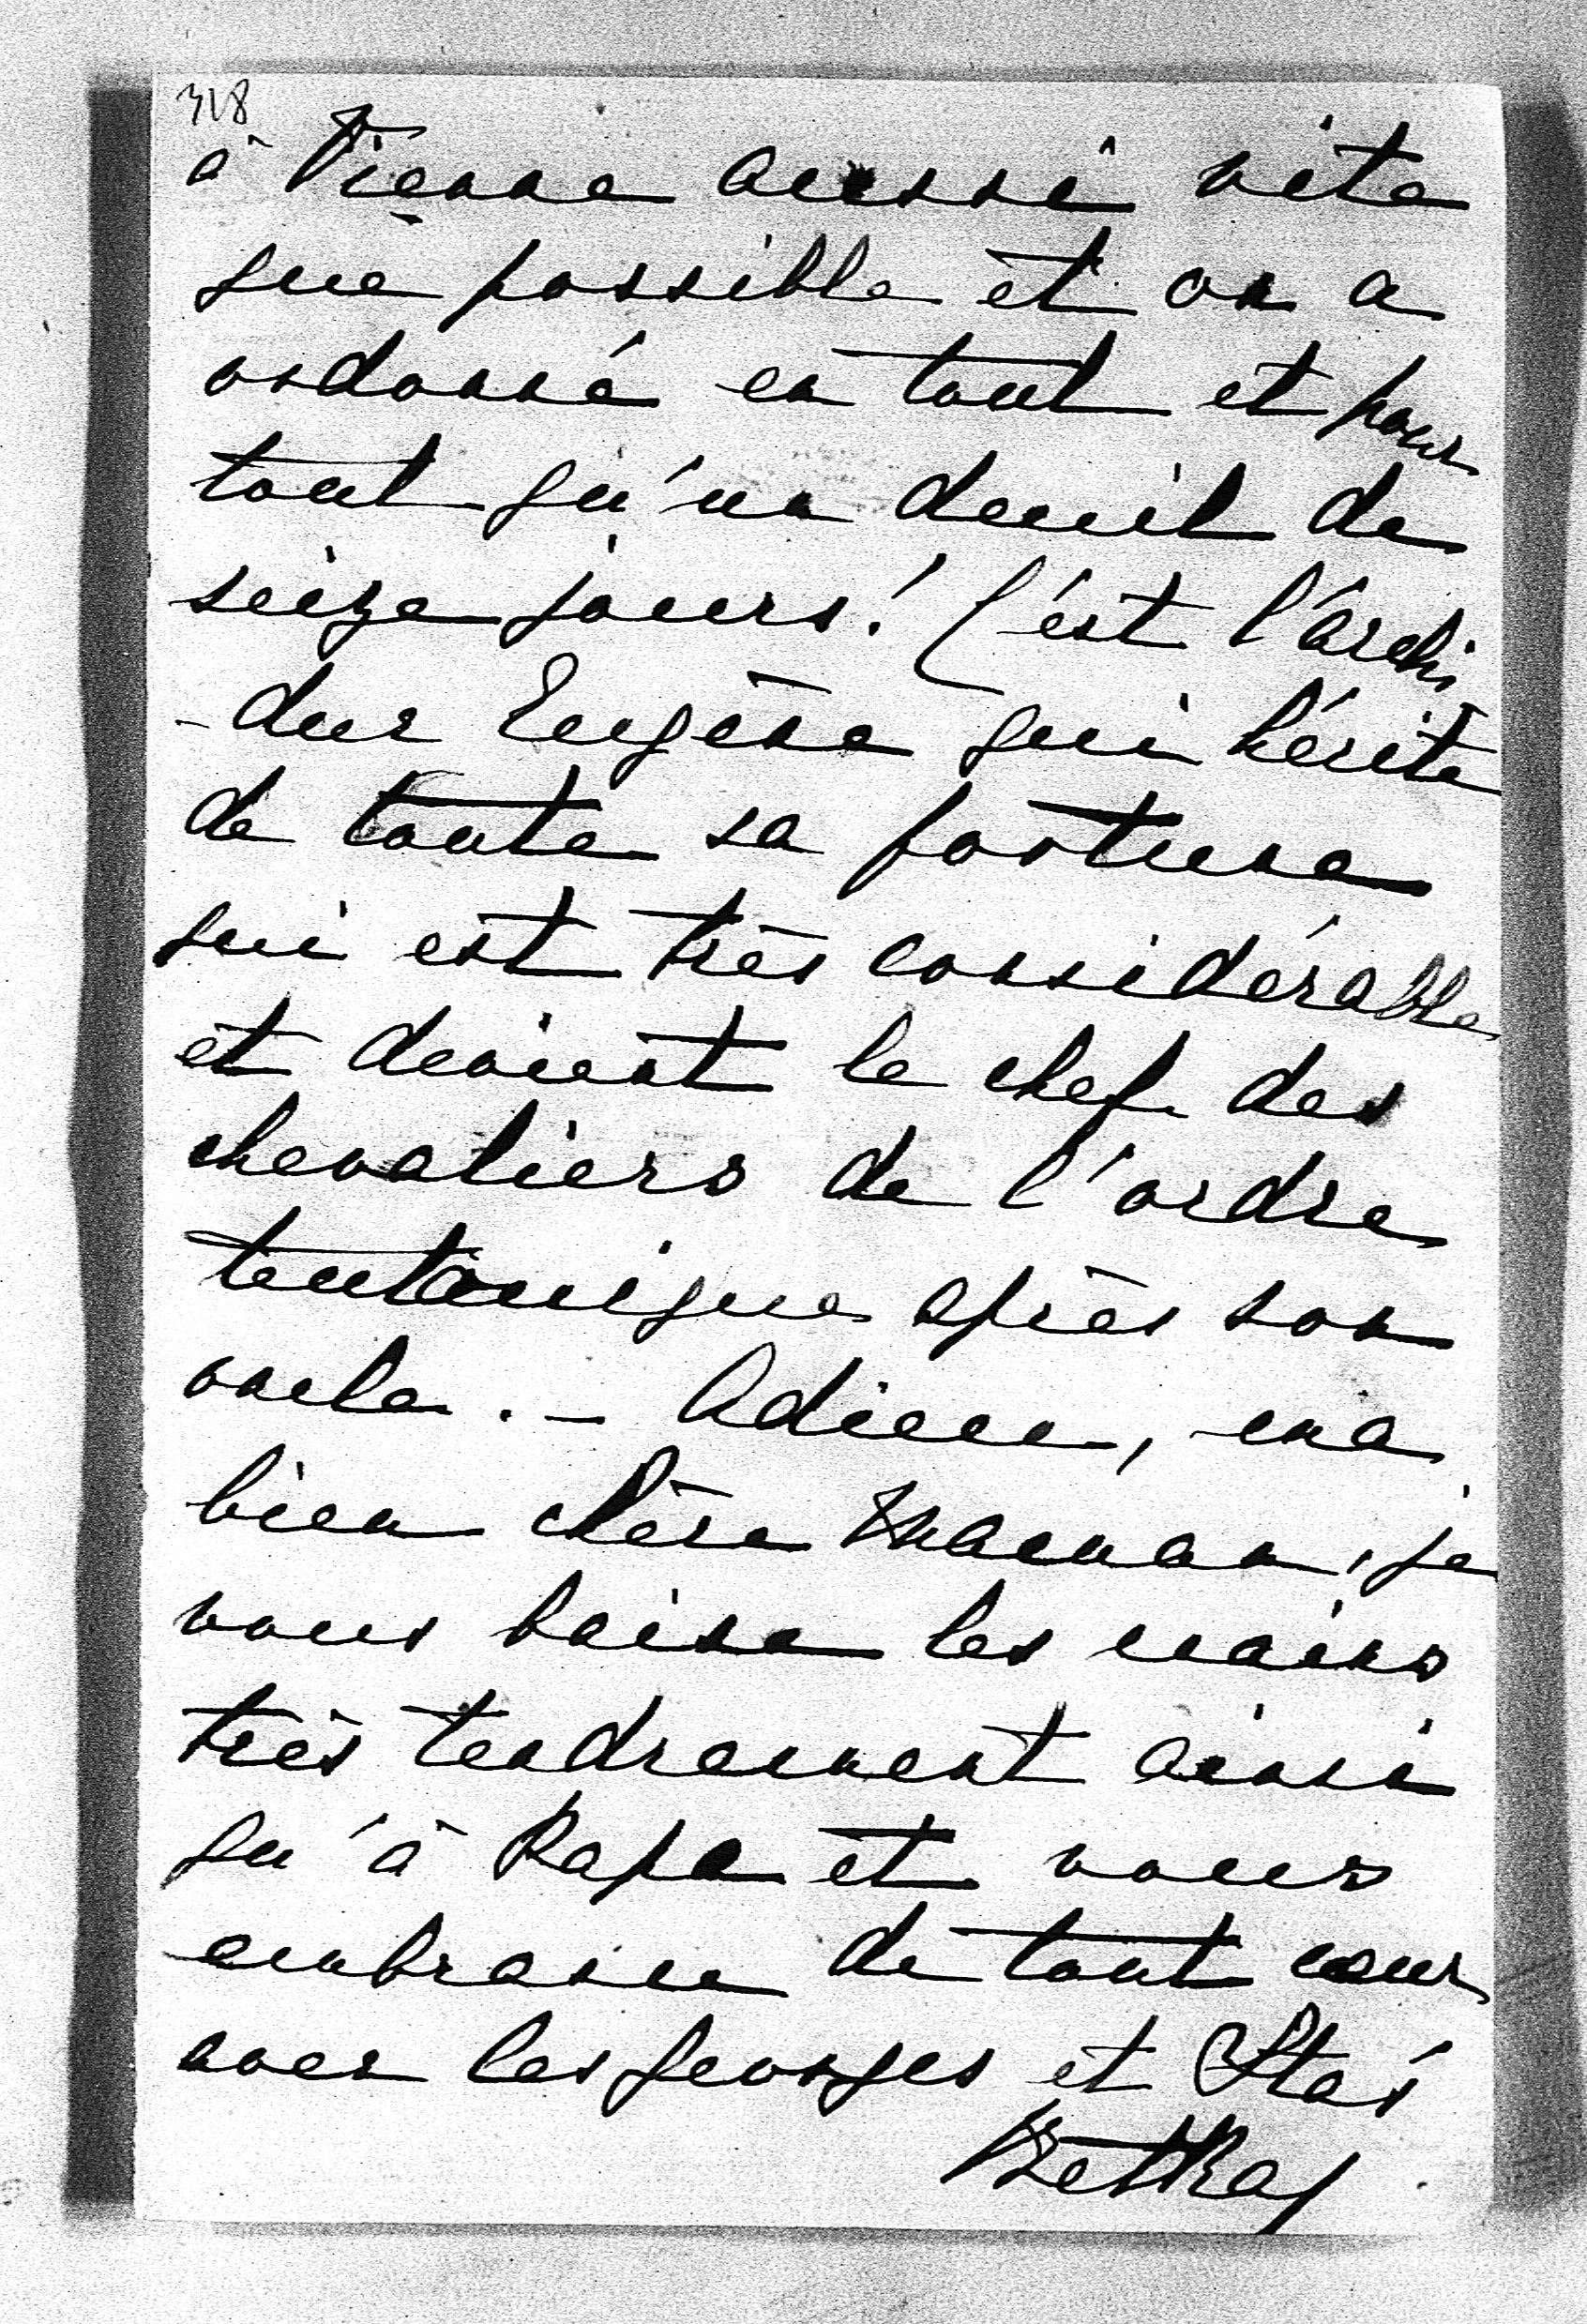 318
à Vienne aussi vite
que possible et on a
ordonné en tout et pour
tout qu'un deuil de
seize jours! C'est l'archi
-duc Eugène qui hérite
de toute sa fortune
qui est très considérable
et devient le chef des
chevaliers de l'ordre
teutonique après son
oncle. – Adieu, ma
bien chère Maman, je
vous baise les mains
très tendrement ainsi
qu'à Papa et vous
embrasse de tout cœur
avec les Georges et Stas
BetKa